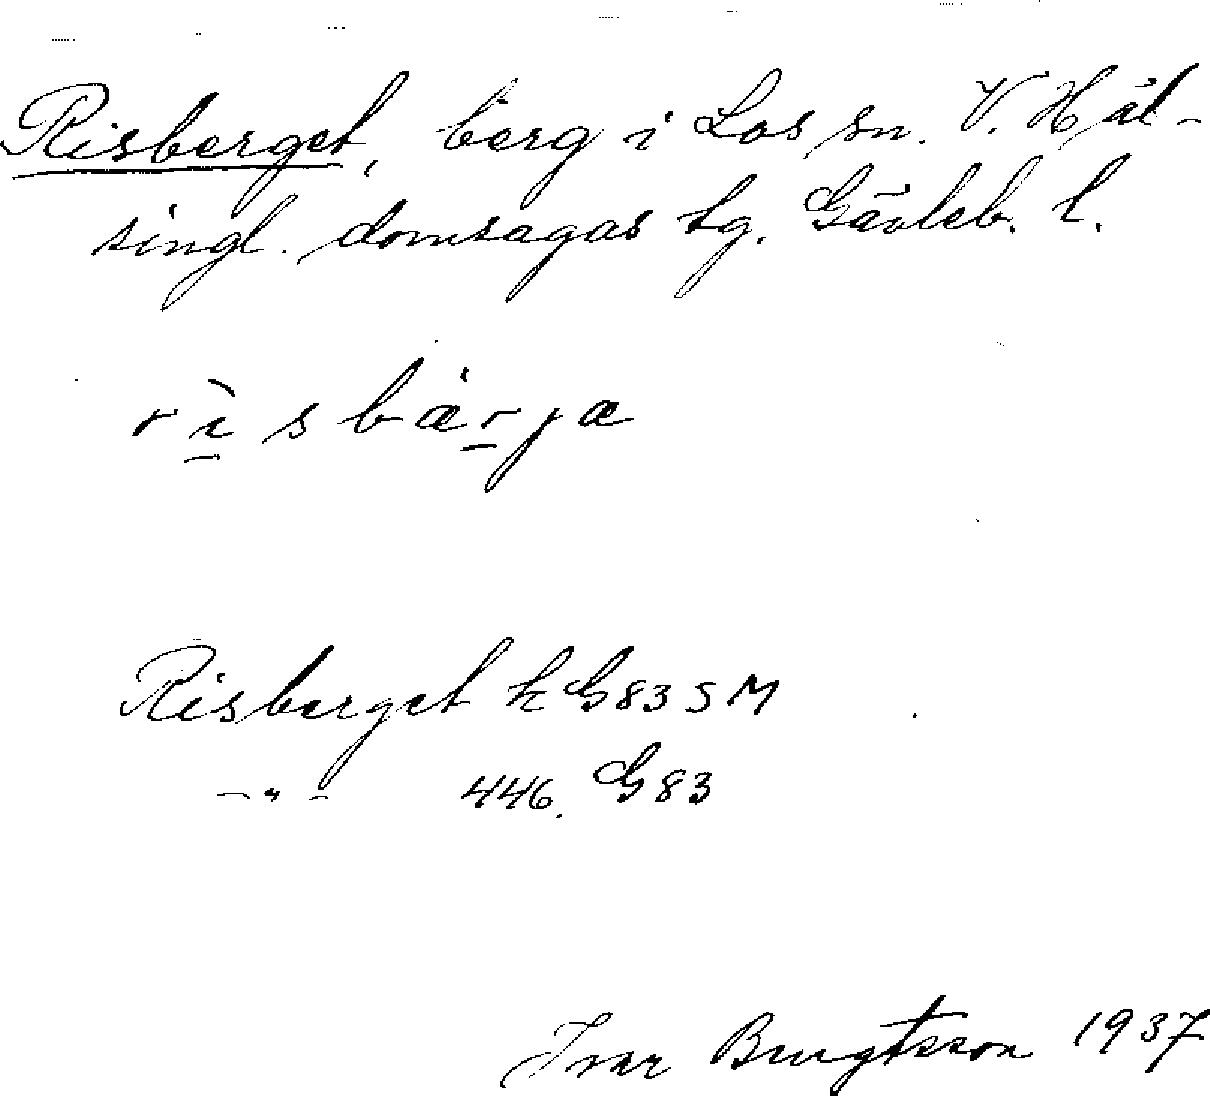 Risberget, berg i Los sn. V. Häl-
singl. domsagas tg. Gävleb. l.
rìsbärja
Risberget k G83 SM
—"— 446. G83
Ivar Bengtsson 1937